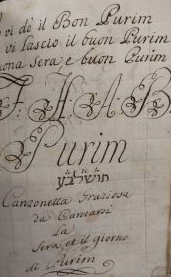 vi dò il Bon Purim
vi lascio il buon Purim
buona Sera e buon Purim
Purim
Canzonetta Graziosa
da Cantarsi
La
Sera, et il giorno
di Purim